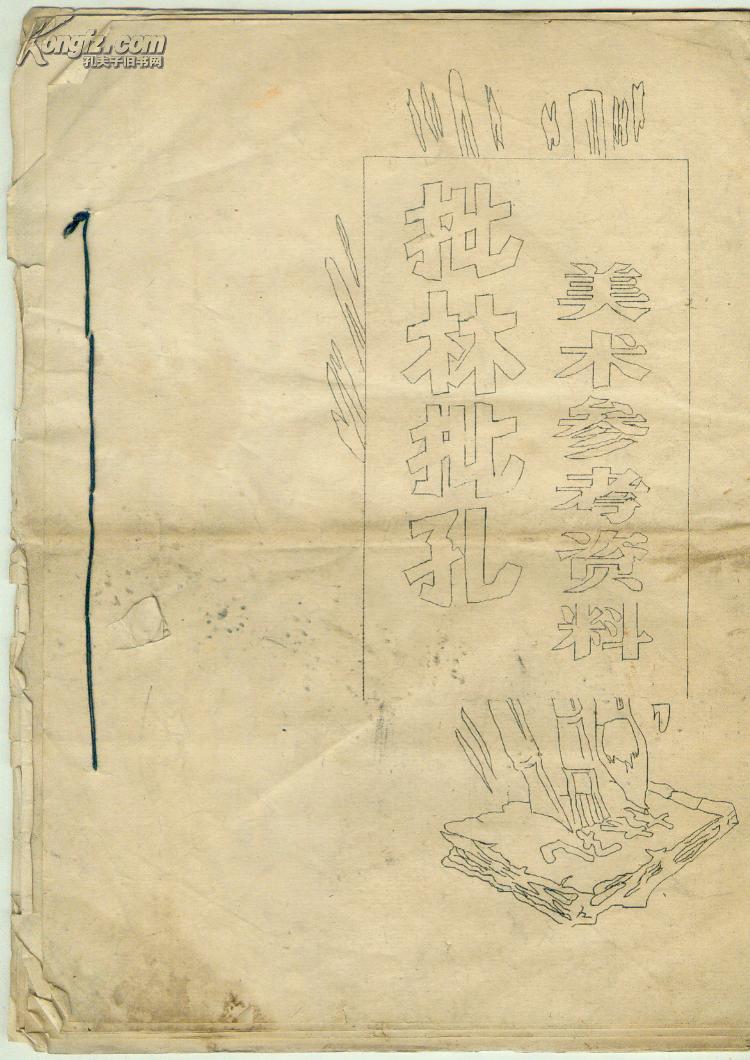 Kongfz.com
孔夫子旧书网
批林批孔
美术参考资料